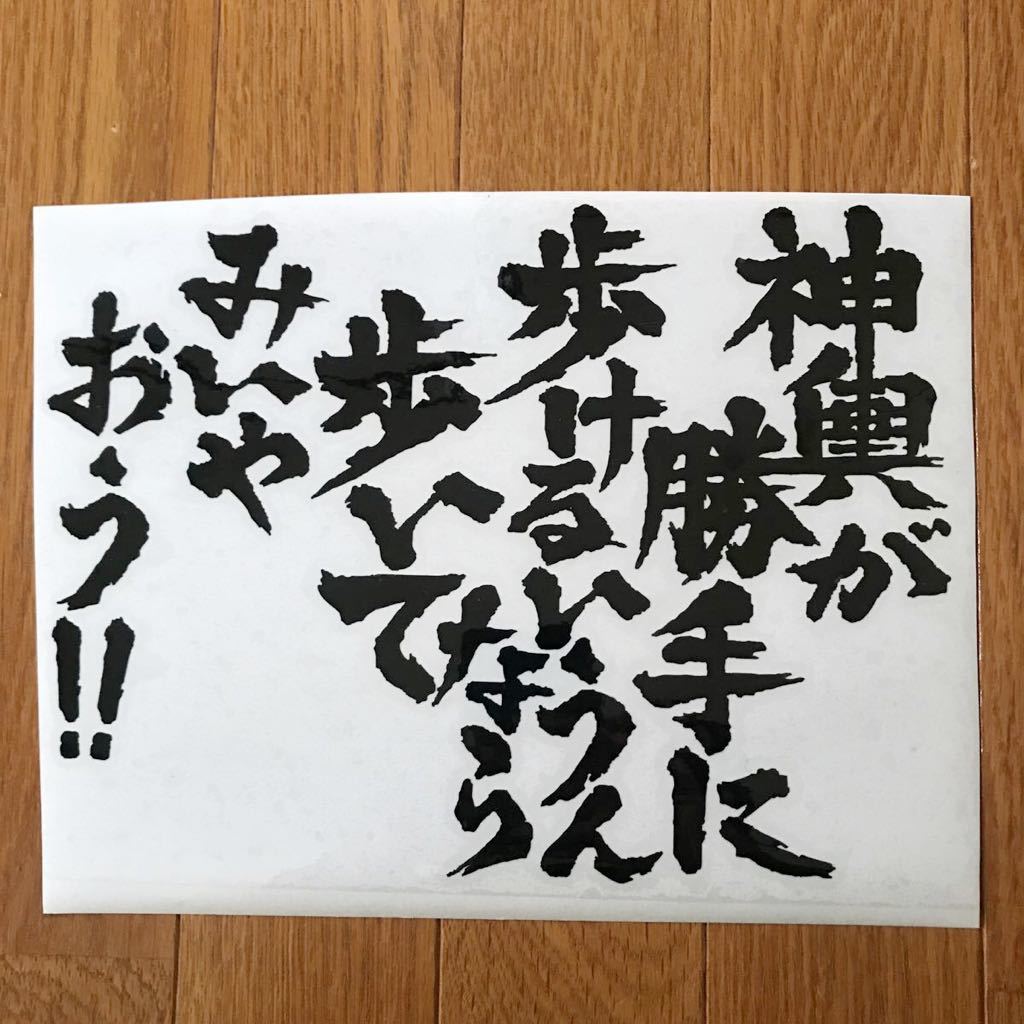 神輿が
勝手に
歩けるいうん
なら
歩いて
みいや
おう!!